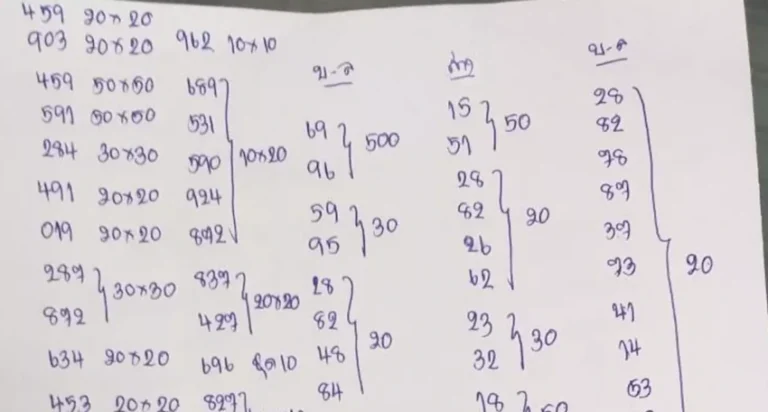 459 20×20
903 20×20 962 10×10
บ-ล
ล่าง
บ-ล
459 50×50 689
591 50×50 531
284 30×30 590 10×20
491 20×20 924
019 20×20 872
287
892 30×30
634 20×20
453 20×20
837
427 20×20
696 ชุด 10
827
69
96 500
59
95 30
28
82
48
84 20
15
51 50
28
82
26
62 20
23
32 30
18
28
82
78
87
37
73
41
14
53
20